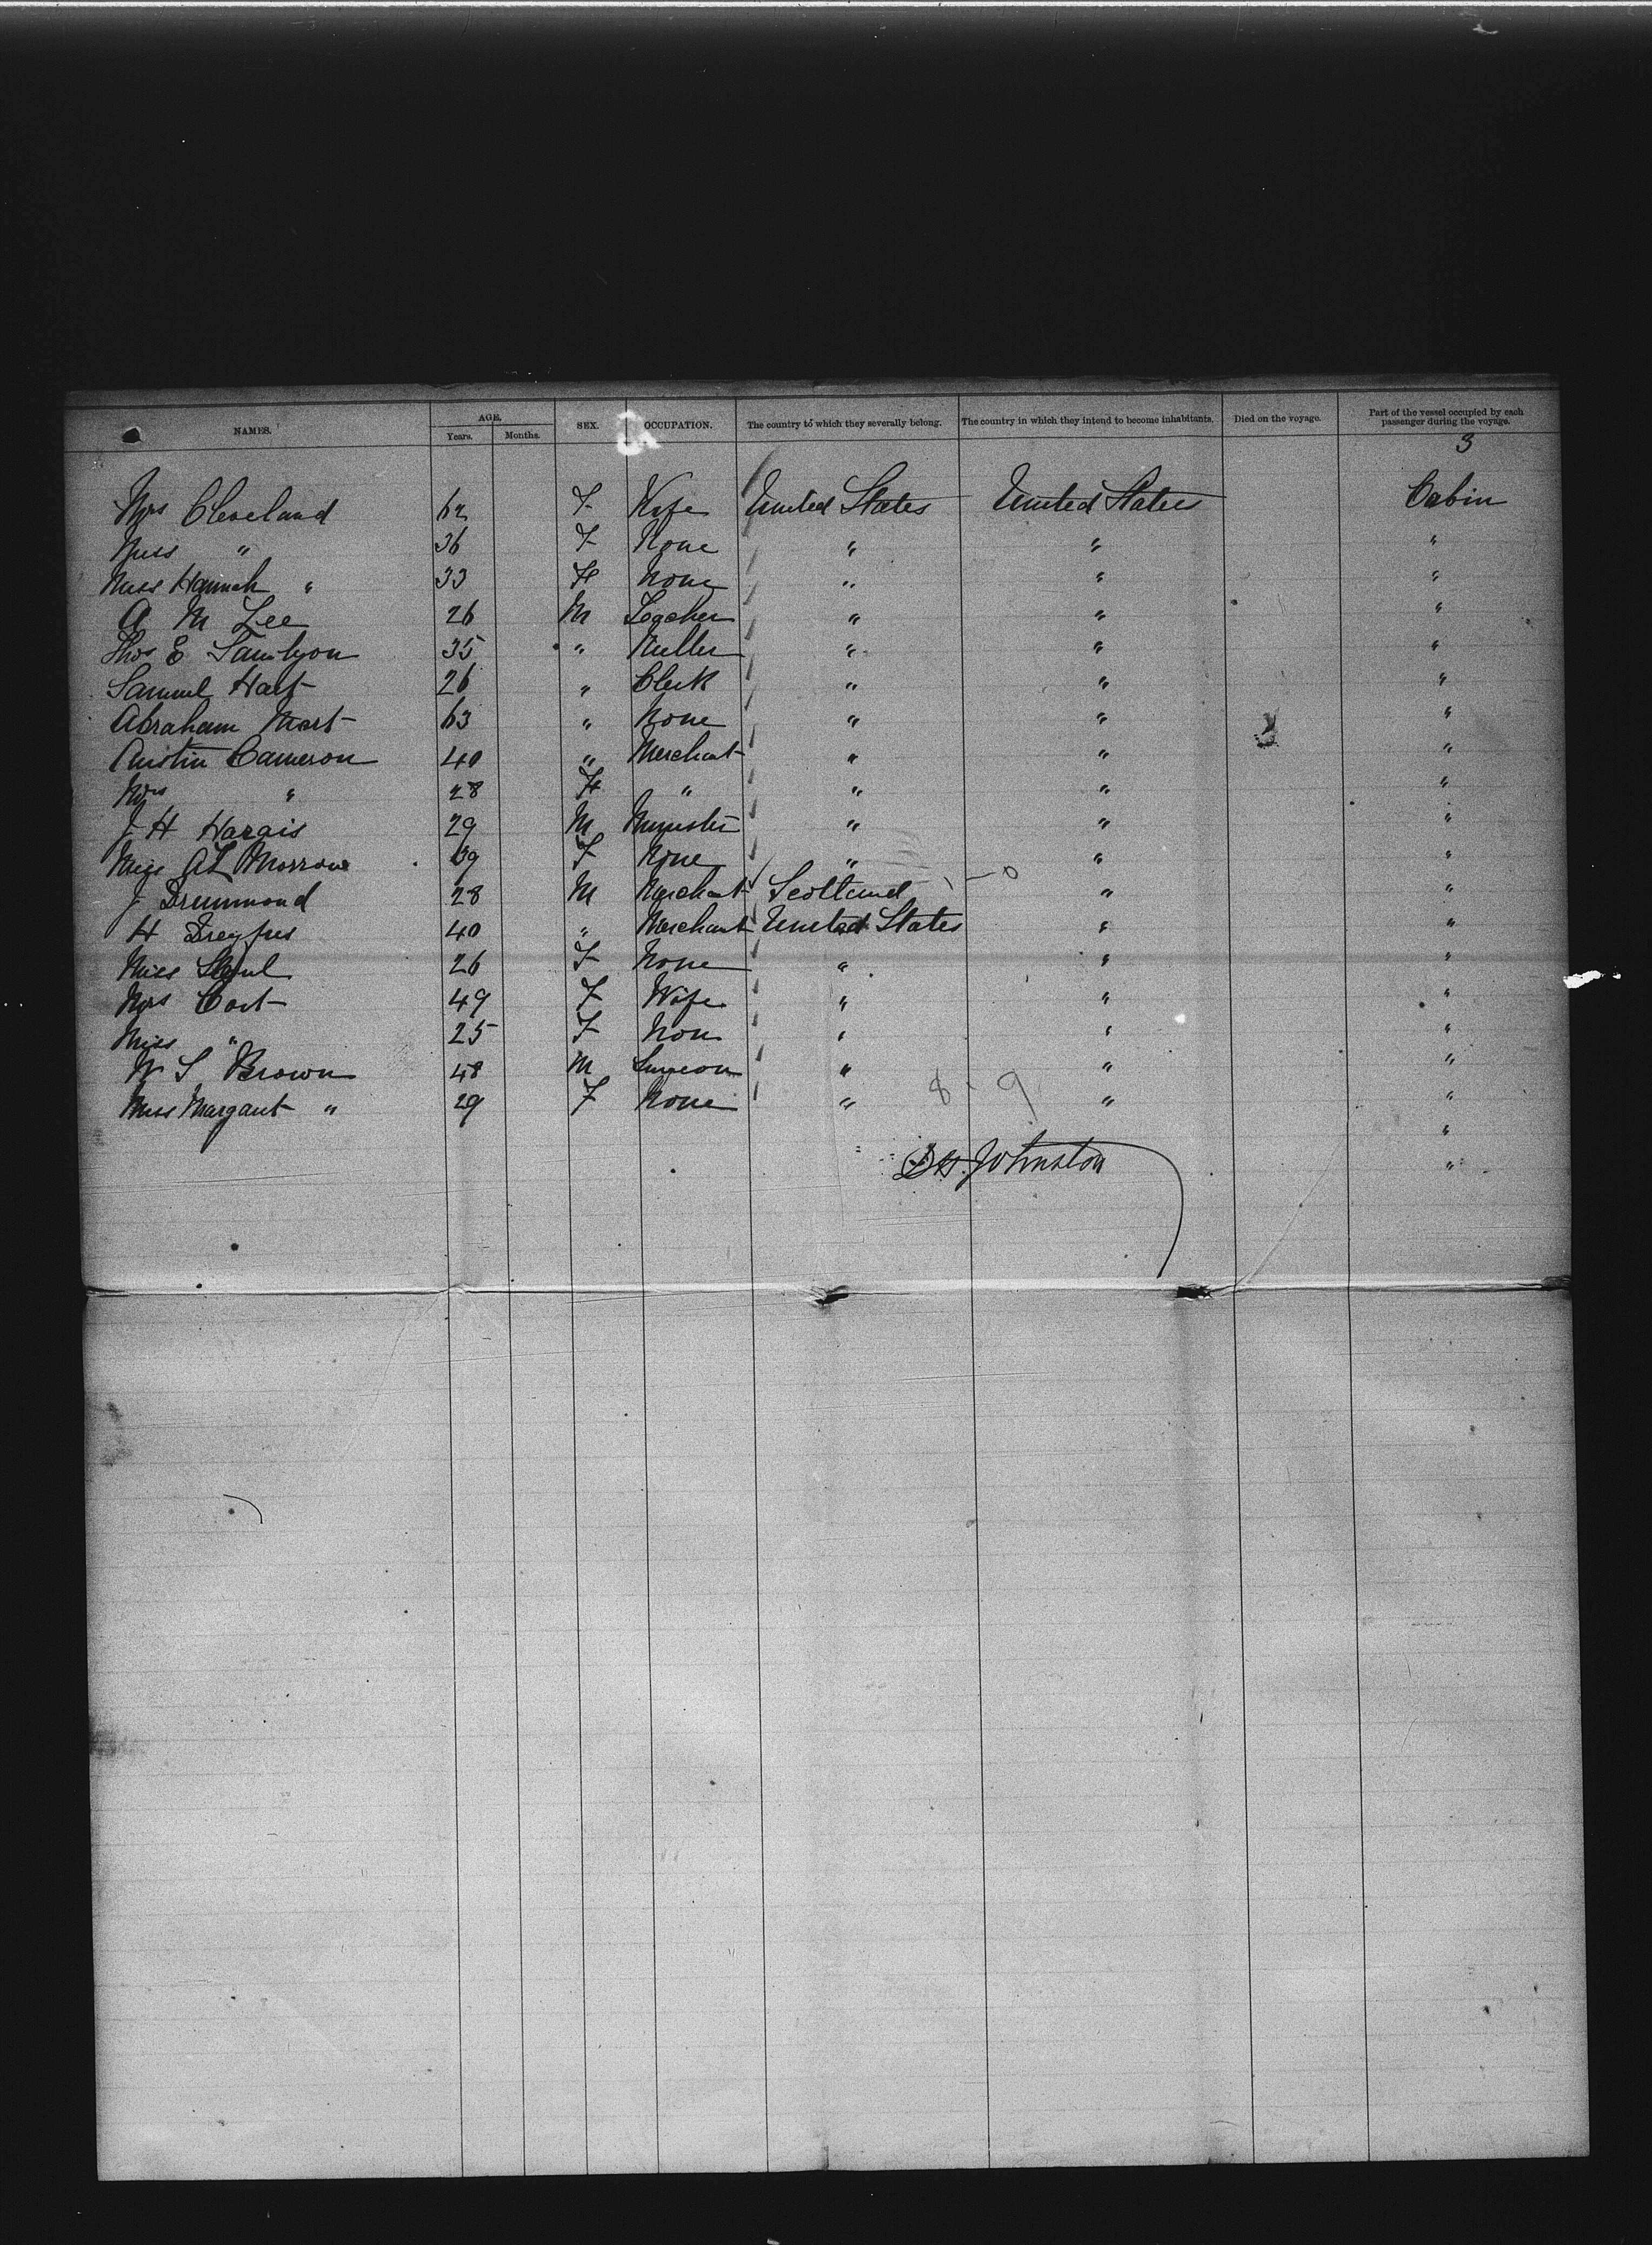 NAMES. AGE. Years. Months. SEX. OCCUPATION. The country to which they severally belong. The country in which they intend to become inhabitants. Died on the voyage. Part of the vessel occupied by each passenger during the voyage.
3
Mrs Cleveland 62 F Wife United States United States Cabin
Miss " 36 F None " " "
Miss Hannah " 33 F None " " "
A M Lee 26 M Teacher " " "
Thos E 35 " Miller " " "
Samuel Hart 26 " Clerk " " "
Abraham Hart 63 " None " " "
Austin Cameron 40 " Merchant " " "
Mrs " 28 F " " " "
J H Hargis 29 M Minister " " "
Miss A L Morrow 39 F None " " "
J Drummond 28 M Merchant Scotland — 0 " "
H Dreyfus 40 " Merchant United States " "
Miss 26 F None " " "
Mrs Cort 49 F Wife " " "
Miss " 25 F Non " " "
W S Brown 48 M Surgeon " " "
Miss Margaret " 29 F None " 8 - 9 " "
"
Johnston "